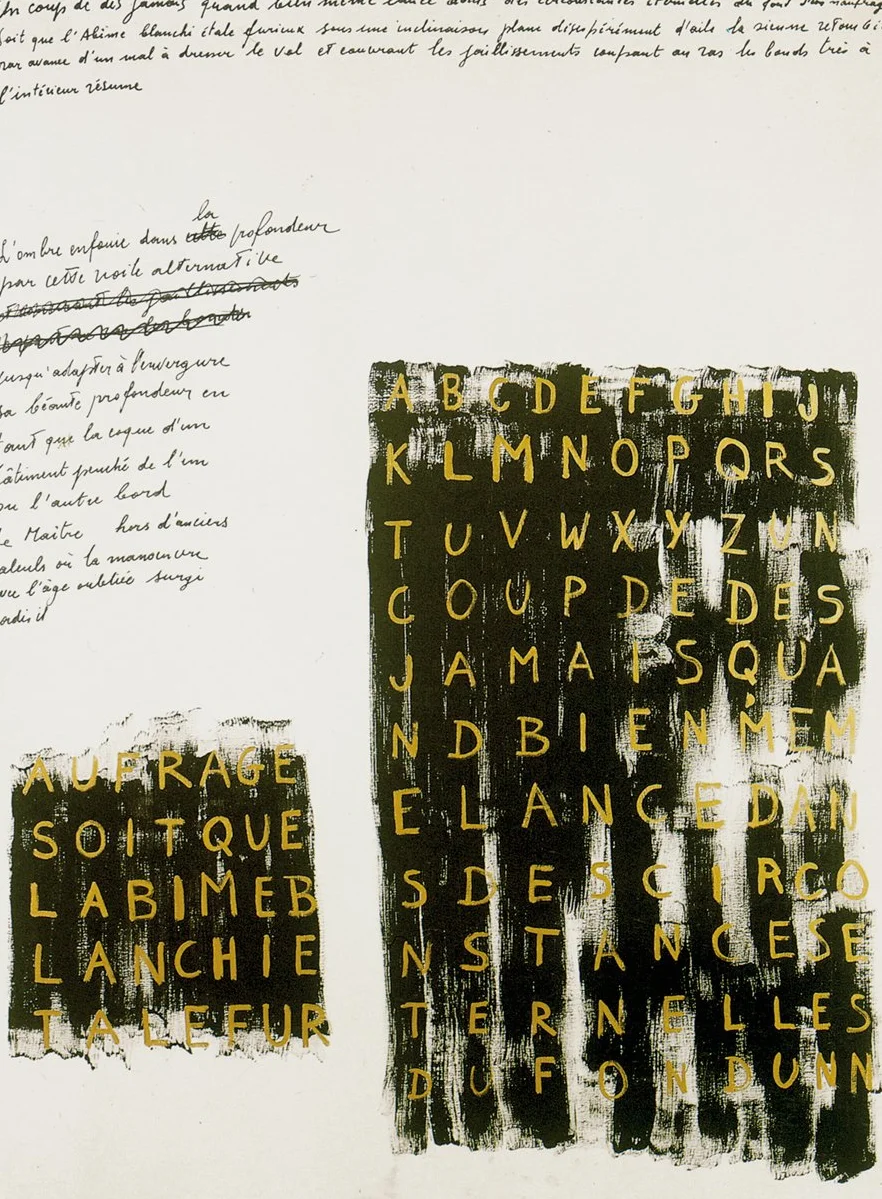 Un coup de dés jamais quand bien même lancé dans des circonstances éternelles du fond d'un naufrage
soit que l'Abîme blanchi étale furieux sous une inclinaison plane désespérément d'aile la sienne
par avance d'un mal à dresser le vol et couvrant les jaillissements coupant au ras les bonds très à
l'intérieur résume
la
L'ombre enfouie dans cette profondeur
par cette voile alternative
et couvrant les jaillissements
jusqu'adapter à l'envergure
sa béante profondeur en
tant que la coque d'un
bâtiment penché de l'un
ou l'autre bord
le Maître hors d'anciens
calculs où la manoeuvre
avec l'âge oubliée surgi
A B C D E F G H I J
K L M N O P Q R S
T U V W X Y Z U N
C O U P D E D E S
J A M A I S Q U A
N D B I E N M E M
E L A N C E D A N
S D E S C I R C O
N S T A N C E S E
T E R N E L L E S
D U F O N D U N N
A U F R A G E
S O I T Q U E
L A B I M E B
L A N C H I E
T A L E F U R